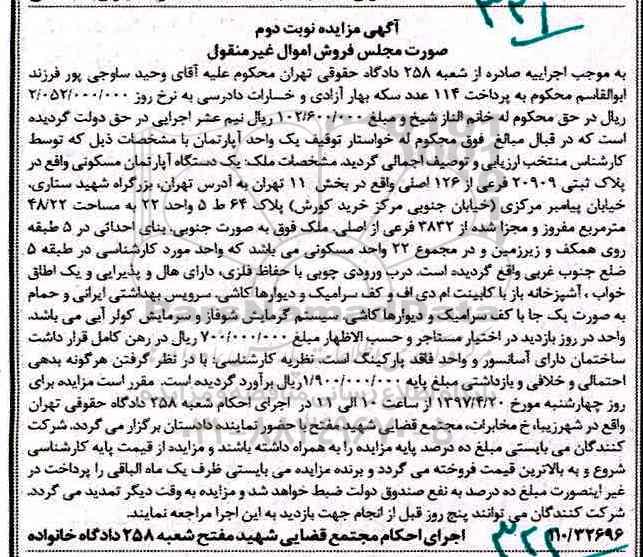 ۳۲۱
آگهی مزایده نوبت دوم
صورت مجلس فروش اموال غیرمنقول
به موجب اجراییه صادره از شعبه ۲۵۸ دادگاه حقوقی تهران محکوم علیه آقای وحید ساوجی پور فرزند
ابوالقاسم محکوم به پرداخت ۱۱۴ عدد سکه بهار آزادی و خسارات دادرسی به نرخ روز ۲/۰۵۲/۰۰۰/۰۰۰
ریال در حق محکوم له خانم الناز شیخ و مبلغ ۱۰۲/۶۰۰/۰۰۰ ریال نیم عشر اجرایی در حق دولت گردیده
است که در قبال مبالغ فوق محکوم له خواستار توقیف یک واحد آپارتمان با مشخصات ذیل که توسط
کارشناس منتخب ارزیابی و توصیف اجمالی گردید. مشخصات ملک: یک دستگاه آپارتمان مسکونی واقع در
پلاک ثبتی ۲۰۹۰۹ فرعی از ۱۲۶ اصلی واقع در بخش ۱۱ تهران به آدرس تهران، بزرگراه شهید ستاری،
خیابان پیامبر مرکزی (خیابان جنوبی مرکز خرید کورش) پلاک ۶۴ ط ۵ واحد ۲۲ به مساحت ۴۸/۲۲
مترمربع مفروز و مجزا شده از ۳۸۳۲ فرعی از اصلی. ملک فوق به صورت جنوبی، بنای احداثی در ۵ طبقه
روی همکف و زیرزمین و در مجموع ۲۲ واحد مسکونی می باشد که واحد مورد کارشناسی در طبقه ۵
ضلع جنوب غربی واقع گردیده است. درب ورودی چوبی با حفاظ فلزی، دارای هال و پذیرایی و یک اطاق
خواب ، آشپزخانه باز با کابینت ام دی اف و کف سرامیک و دیوارها کاشی، سرویس بهداشتی ایرانی و حمام
به صورت یک جا با کف سرامیک و دیوارها کاشی سیستم گرمایش شوفاژ و سرمایش کولر آبی می باشد.
واحد در روز بازدید در اختیار مستاجر و حسب الاظهار مبلغ ۷۰۰/۰۰۰/۰۰۰ ریال در رهن کامل قرار داشت
ساختمان دارای آسانسور و واحد فاقد پارکینگ است. نظریه کارشناسی: با در نظر گرفتن هرگونه بدهی
احتمالی و خلافی و بازداشتی مبلغ پایه ۱/۹۰۰/۰۰۰/۰۰۰ریال برآورد گردیده است. مقرر است مزایده برای
روز چهارشنبه مورخ ۱۳۹۷/۴/۲۰ از ساعت ۱۰ الی ۱۱ در اجرای احکام شعبه ۲۵۸ دادگاه حقوقی تهران
واقع در شهرزیبا، خ مخابرات، مجتمع قضایی شهید مفتح با حضور نماینده دادستان برگزار می گردد. شرکت
کنندگان می بایستی مبلغ ده درصد پایه مزایده را به همراه داشته باشند و مزایده از قیمت پایه کارشناسی
شروع و به بالاترین قیمت فروخته می گردد و برنده مزایده می بایستی ظرف یک ماه الباقی را پرداخت در
غیر اینصورت مبلغ ده درصد به نفع صندوق دولت ضبط خواهد شد و مزایده به وقت دیگر تمدید می گردد.
شرکت کنندگان می توانند پنج روز قبل از انجام جهت بازدید به این اجرا مراجعه نمایند.
۱۱۰/۳۲۶۹۶ اجرای احکام مجتمع قضایی شهید مفتح شعبه ۲۵۸ دادگاه خانواده